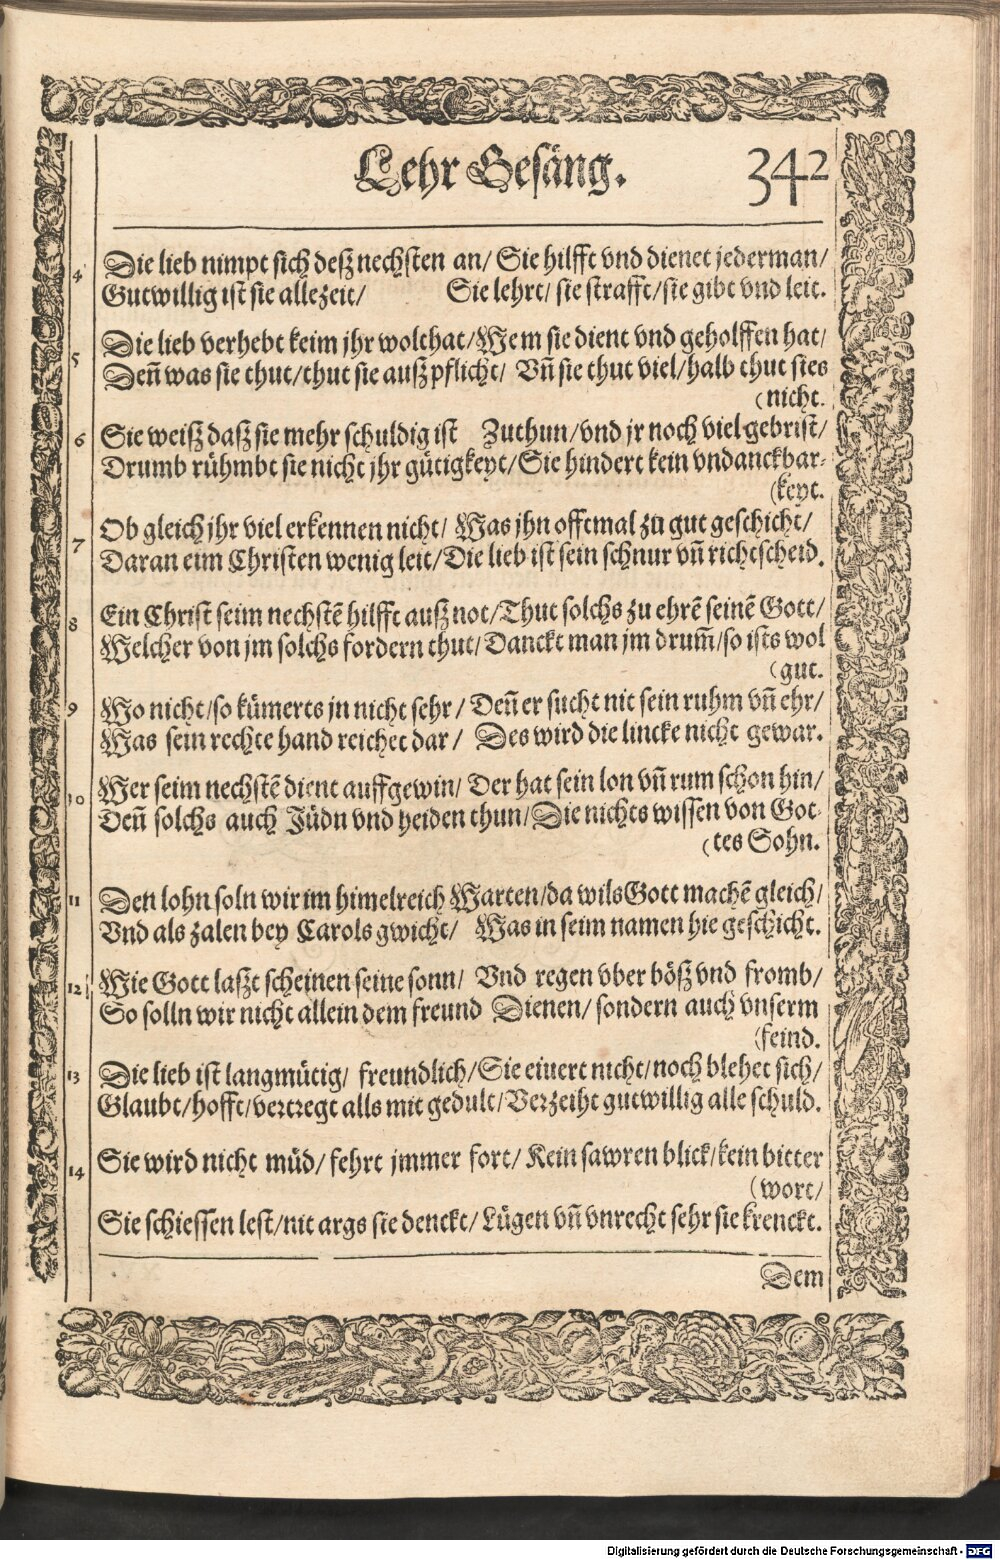 Lehr Gesäng. 342
4 Die lieb nimpt sich deß nechsten an/ Sie hilfft vnd dienet jederman/
Gutwillig ist sie allezeit/ Sie lehrt/ sie strafft/sie gibt vnd leit.
5 Die lieb verhebt keim jhr wolthat/Wem sie dient vnd geholffen hat/
Deñ was sie thut/thut sie auß pflicht/ Vñ sie thut viel/halb thut sies
(nicht.
6 Sie weiß daß sie mehr schuldig ist Zuthun/vnd jr noch viel gebrist/
Drumb rühmbt sie nicht jhr gütigkeyt/Sie hindert kein vndanckbar-
(keyt.
7 Ob gleich jhr viel erkennen nicht/ Was jhn offtmal zu gut geschicht/
Daran eim Christen wenig leit/Die lieb ist sein schnur vñ richtscheid.
8 Ein Christ seim nechstẽ hilfft auß not/Thut solchs zu ehrẽ seinẽ Gott/
Welcher von jm solchs fordern thut/Danckt man jm drum̃/so ists wol
(gut.
9 Wo nicht/so kümerts jn nicht sehr/ Deñ er sucht nit sein ruhm vñ ehr/
Was sein rechte hand reichet dar/ Des wird die lincke nicht gewar.
10 Wer seim nechstẽ dient auff gewin/ Der hat sein lon vñ rum schon hin/
Deñ solchs auch Jüdn vnd heiden thun/Die nichts wissen von Got-
(tes Sohn.
11 Den lohn soln wir im himelreich Warten/da wils Gott machẽ gleich/
Vnd als zalen bey Carols gwicht/ Was in seim namen hie geschicht.
12 Wie Gott laßt scheinen seine sonn/ Vnd regen vber böß vnd fromb/
So solln wir nicht allein dem freund Dienen/ sondern auch vnserm
(feind.
13 Die lieb ist langmütig/ freundlich/Sie eiuert nicht/noch blehet sich/
Glaubt/hofft/vertregt alls mit gedult/Verzeiht gutwillig alle schuld.
14 Sie wird nicht müd/ fehrt jmmer fort/ Kein sawren blick/kein bitter
(wort/
Sie schiessen lest/nit args sie denckt/ Lügen vñ vnrecht sehr sie krenckt.
Dem
Digitalisierung gefördert durch die Deutsche Forschungsgemeinschaft - DFG